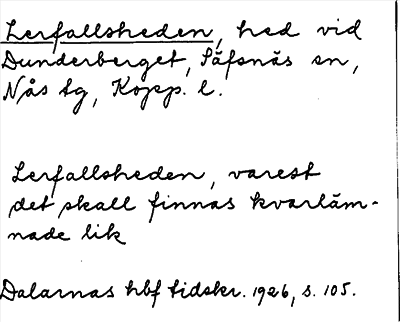 Lerfallsheden, hed vid
Dunderberget, Säfsnäs sn,
Nås tg, Kopp. l.
Lerfallsheden, varest
det skall finnas kvarläm-
nade lik
Dalarnas hbf tidskr. 1926, s. 105.